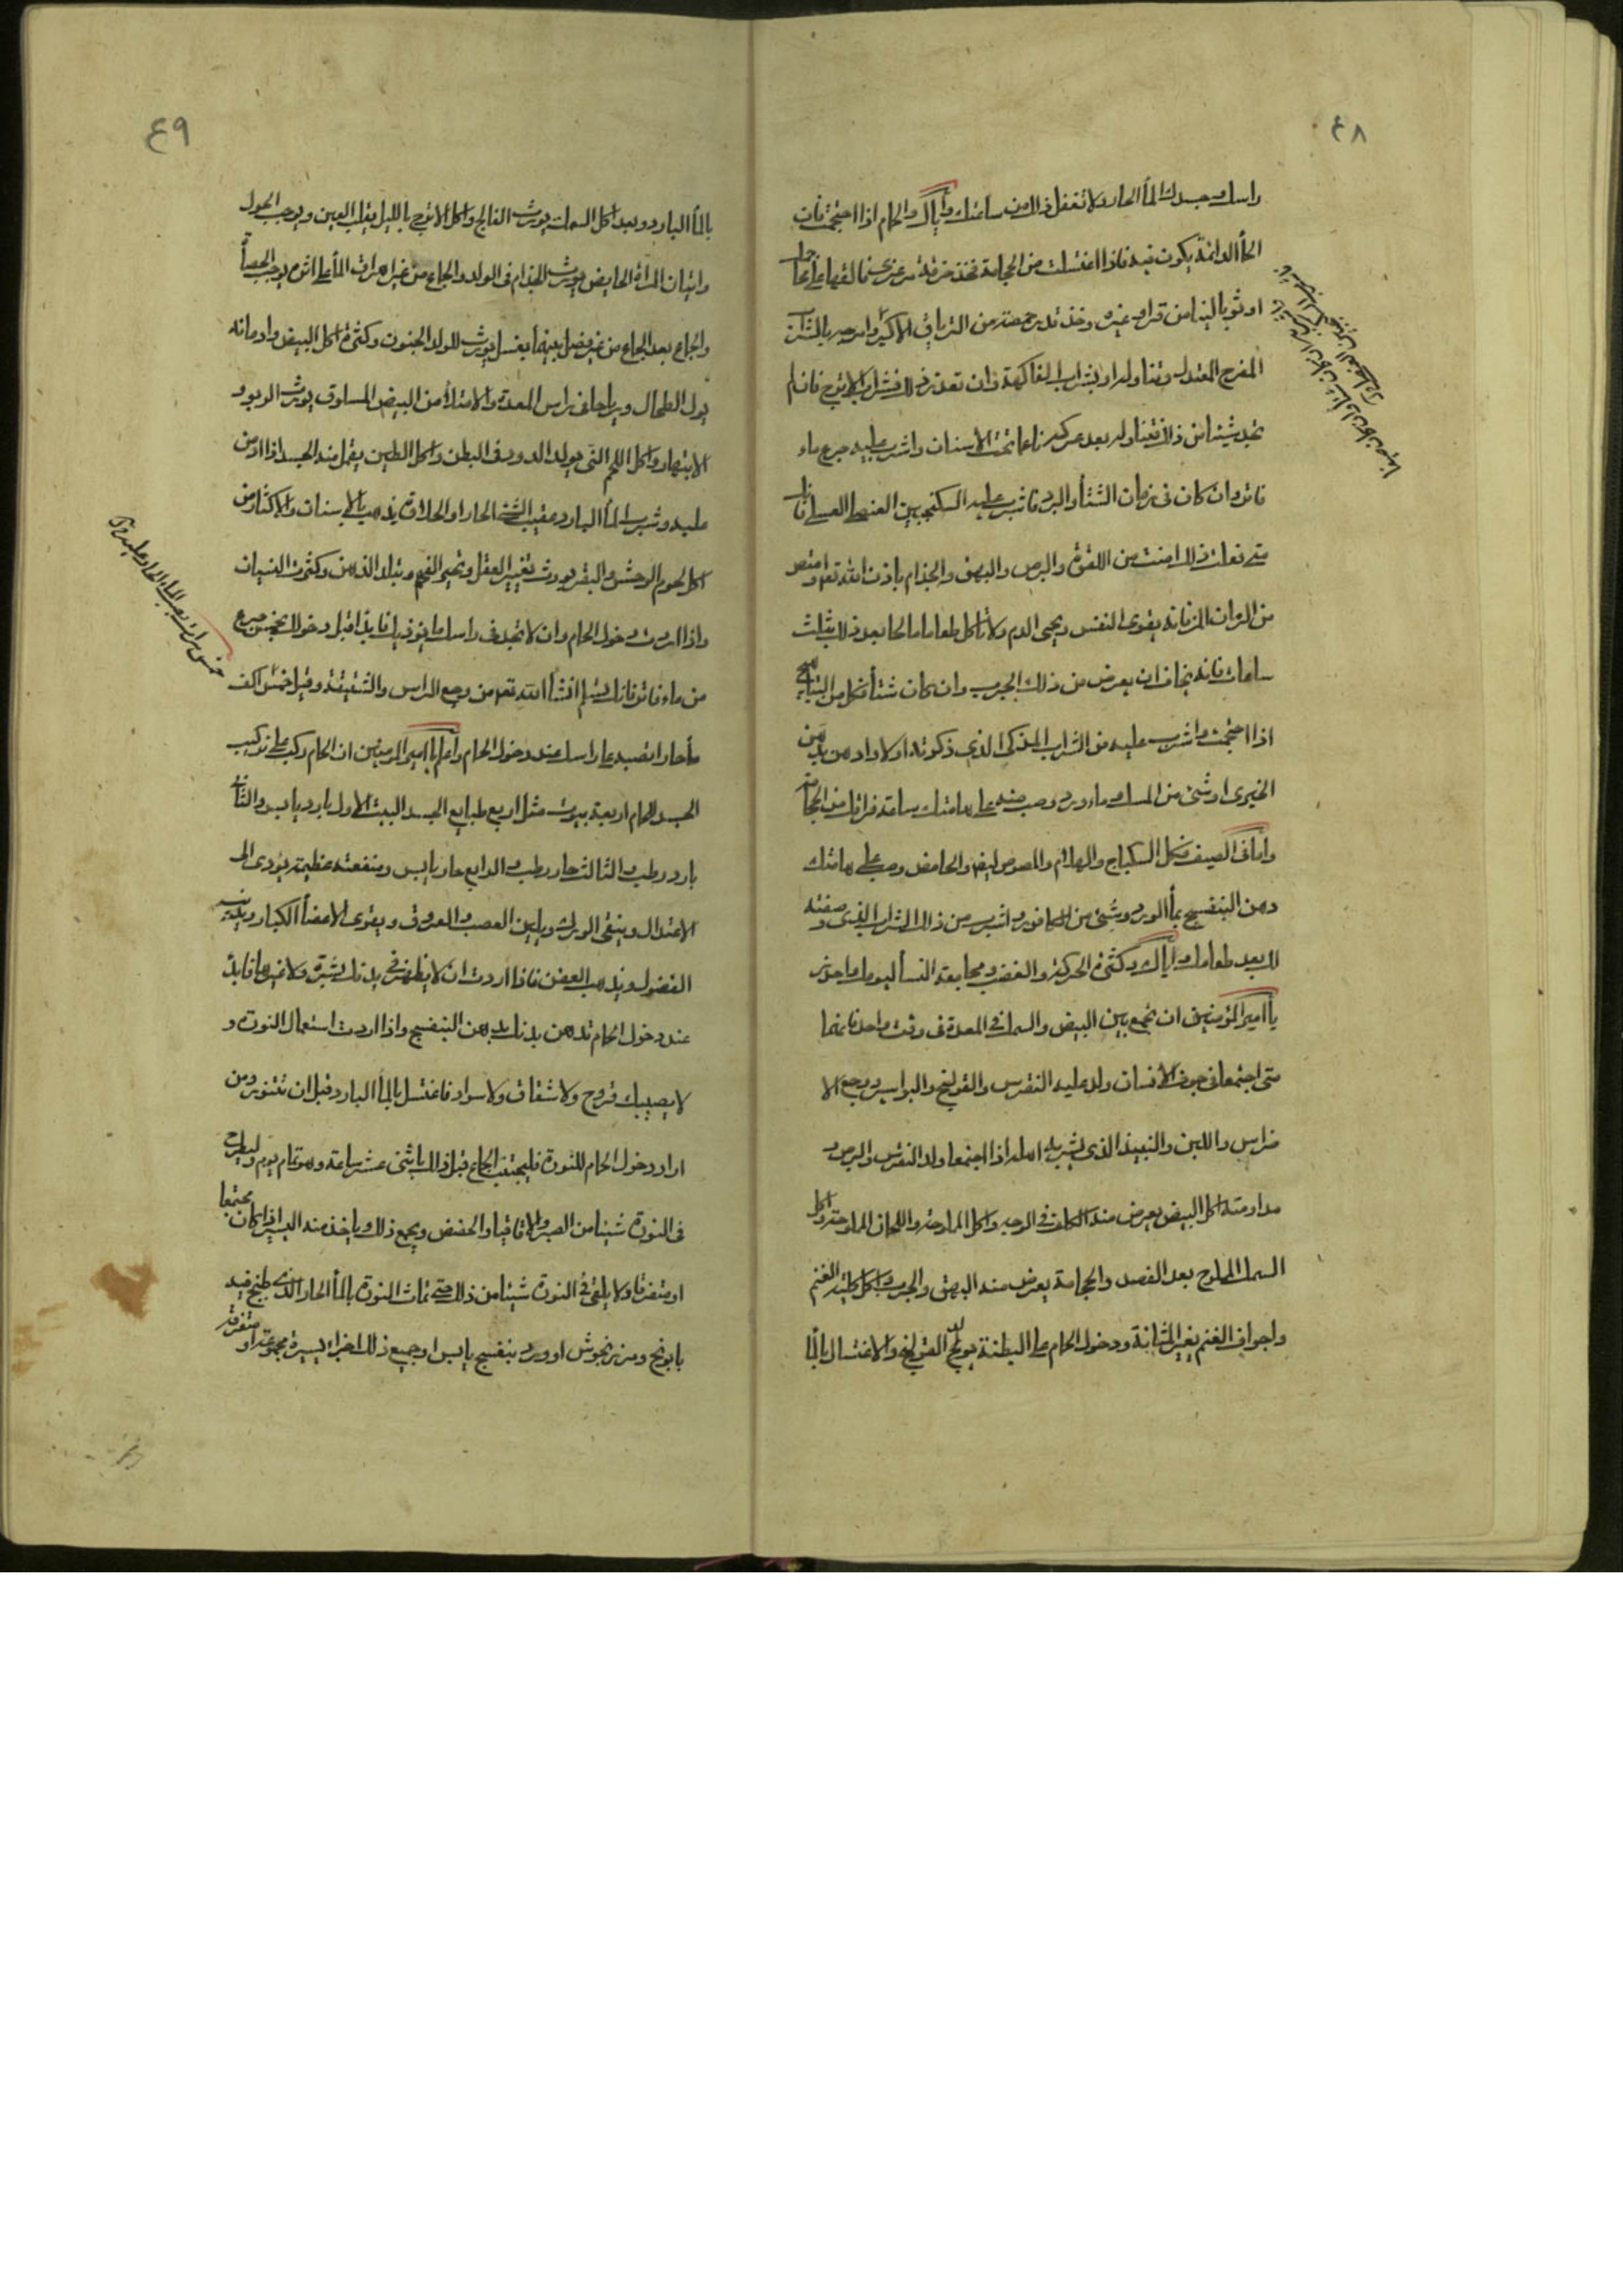 ٤٨
راسك وجسدك بالمأ الحار ولا تغفل ذلك من ساعتك واياك والحمام اذا احتجمت فان
الحمأ الدائمة يكون فيه فاذا اغتسلت من الحجامة فخذ خرقة مرعزى فالقها على محاجمك
او ثوبا لينا من قز او غيره وخذ قدر حمصة من الترياق الاكبر وامزجه بالشراب
المفرح المعتدل وتناوله او بشراب الفاكهة وان تعذر ذلك فشراب الاترج فان لم
تجد شيئا من ذلك فتناوله بعد عركه ناعما تحت الاسنان واشرب عليه جرع ماء
فاتر وان كان في زمان الشتأ والبرد فاشرب عليه السكنجبين العنصلي العسلي فانك
متى فعلت ذلك امنت من اللقوة والبرص والبهق والجذام باذن الله تعو وامتص
من الرمان المز فانه يقوى النفس ويحيى الدم ولا تاكل طعاما مالحا بعد ذلك بثلث
ساعات فانه يخاف ان يعرض من ذلك الجرب وان كان شتأ فكل من الطياهيج
اذا احتجمت واشرب عليه من الشراب المذكى الذي ذكرته اولا وادهن بدهن
الخيرى او شئ من المسك وماء ورد وصب منه على هامتك ساعة فراغك من الحجامة
واما في الصيف فكل السكباج والهلام والمصوص ايضا والحامض وصب على هامتك
دهن البنفسج بمأ الورد وشئ من الكافور واشرب من ذلك الشراب الذي وصفته
لك بعد طعامك واياك وكثرة الحركة والغضب ومجامعة النسأ ليومك واحذر
يا امير المؤمنين ان تجمع بين البيض والسمك في المعدة في وقت واحد فانهما
متى اجتمعا في جوف الانسان ولد عليه النقرس والقولنج والبواسير ووجع الا
ضراس واللبن والنبيذ الذي يشربه اهله اذا اجتمعا ولد النقرس والبرص و
مداومة اكل البيض يعرض منه الكلف في الوجه واكل الملوحة واللحمان المملوحة واكل
السمك المملوح بعد الفصد والحجامة يعرض منه البهق والجرب واكل كلية الغنم
واجواف الغنم يغير المثانة ودخول الحمام على البطنة يولد القولنج والاغتسال بالمأ
٤٩
بالمأ البارد وبعد اكل السمك يورث الفالج واكل الاترج بالليل يقلب العين ويوجب الحول
واتيان المراة الحايض يورث الجذام في الولد والجماع من غير اهراق المأ على اثره يوجب الحصأ
والجماع بعد الجماع من غير فصل بينهما بغسل يورث للولد الجنون وكثرة اكل البيض وادمانه
يولد الطحال ورياحا في راس المعدة والامتلأ من البيض المسلوق يورث الربو و
الابتهار واكل اللحم النى يولد الدود في البطن واكل الطين يقمل منه الجسد اذا ادمن
عليه وشرب المأ البارد عقيب الشئ الحار او الحلاوة يذهب بالاسنان والاكثار من
اكل لحوم الوحش والبقر يورث تغيير العقل وتحير الفهم وتبلد الذهن وكثرت النسيان
واذا اردت دخول الحمام وان لا تجد في راسك ما يوذيك فابدا قبل دخولك بخمس جرع
من ماء فاتر فانك تسلم انشأ الله تعو من وجع الراس والشقيقة وقيل خمس اكف
مأ حار تصبه على راسك عند دخول الحمام واعلم يا امير المومنين ان الحمام ركب على تركيب
الجسد للحمام اربعة بيوت مثل اربع طبايع الجسد البيت الاول بارد يابس والثاني
بارد رطب والثالث حار رطب والرابع حار يابس ومنفعته عظيمة يؤدى الى
الاعتدال وينقى الورك ويلين العصب والعروق ويقوى الاعضأ الكبار ويذيب
الفضول ويذهب العفن فاذا اردت ان لا يظهر في بدنك بثرة ولا غيرها فابدأ
عند دخول الحمام تدهن بدنك بدهن البنفسج واذا اردت استعمال النورة و
لا يصيبك قروح ولا شقاق ولا سواد فاغتسل بالمأ البارد قبل ان تتنور ومن
اراد دخول الحمام للنورة فليجتنب الجماع قبل ذلك باثنى عشر ساعة وهو تمام يوم وليطرح
في النورة شيئا من الصبر والاقاقيا والحضض ويجمع ذلك وياخذ منه اليسير اذا كان مجتمعا
او متفرقا ولا يلقى في النورة شيئا من ذلك حتى تماث النورة بالمأ الحار الذي طبخ فيه
بابونج ومرزنجوش او ورد بنفسج يابس او جميع ذلك اجزاء يسيرة مجموعة او متفرقة